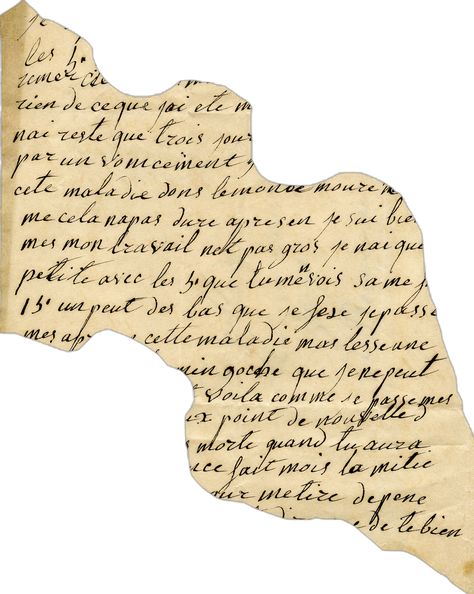 je
les 5ᶠ
remerci
rien de ceque jai ete m
nai reste que trois jour
par un vomicement
cete maladie dons lemonde mouren
me cela napas dure apresen je sui bien
mes mon travail net pas gros je nai que
petite avec les 5ᶠ que tu menvois sa me
15ᶠ un peut des bas que je fese jepasse
mes ap cette maladie mas lesse ane
min goche que je nepeut
voila comme je passe mes
ux point de nouvelle d
morte quand tu aura
nce fait mois la mitie
ur me tire de pene
e de te bien